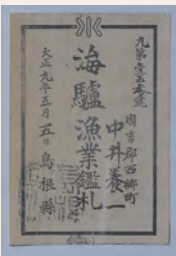 周吉郡西郷町
中井養一
海驢漁業鑑札
大正九年五月五日
島根縣